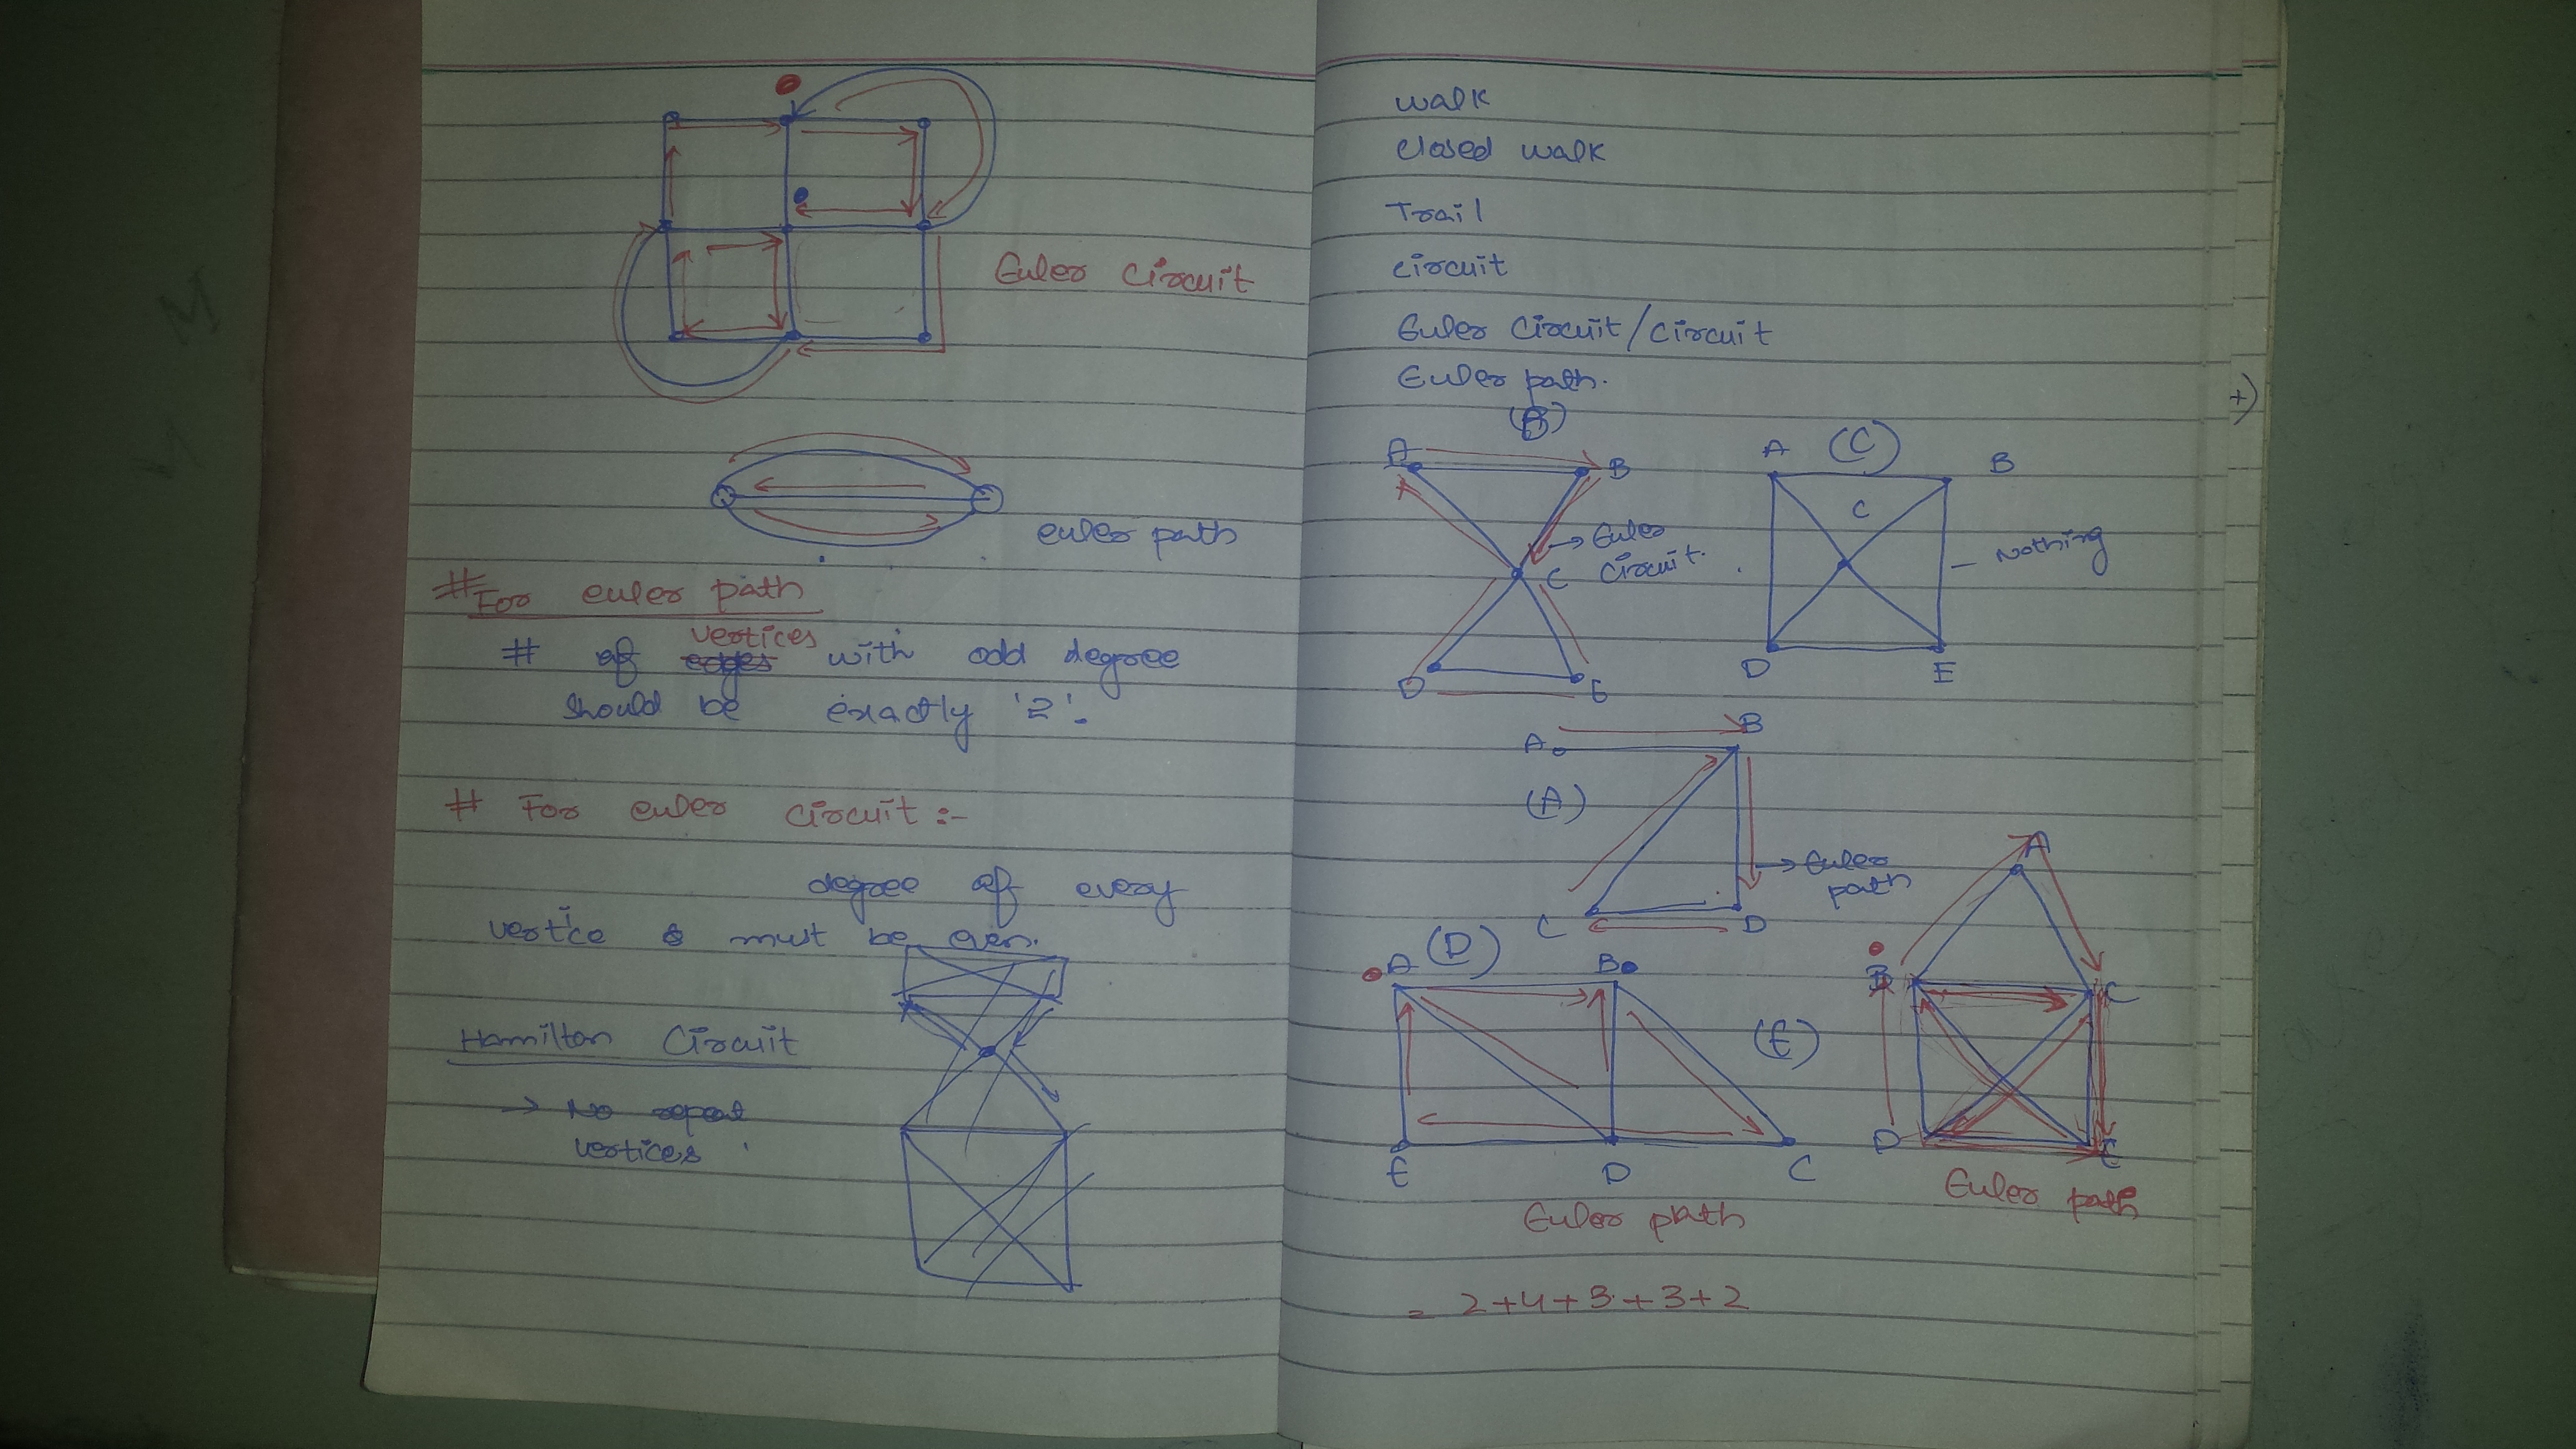 Euler Circuit
euler path
# For euler path
# of vertices with odd degree
should be exactly '2'.
# For euler circuit :-
degree of every
vertice must be even.
Hamilton Circuit
→ No repeat
vertices
walk
closed walk
Trail
circuit
Euler Circuit/circuit
Euler path.
(B)
A
B
C
→ Euler
Circuit.
D
E
A
(C)
B
C
- Nothing
D
E
A
B
(A)
→ Euler
path
C
D
A
(D)
B
E
D
C
Euler path
(E)
A
B
C
D
E
Euler path
= 2+4+3+3+2
+)